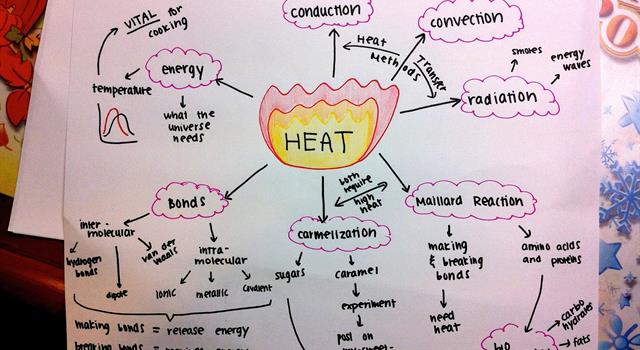 conduction
convection
VITAL for
cooking
Heat
Methods
Transfer
smores
energy
waves
energy
radiation
temperature
what the
universe
needs
HEAT
both
require
high
heat
Bonds
Maillard Reaction
inter-
molecular
carmelization
hydrogen
bonds
van der
waals
intra-
molecular
making
& breaking
bonds
amino acids
and proteins
sugars
caramel
dipole
ionic
metallic
covalent
experiment
need
heat
carbo
hydrates
fats
making bonds = release energy
post on
breaking bonds =